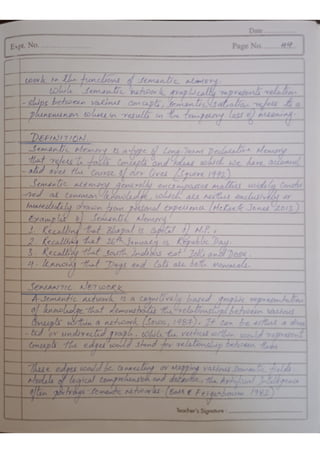 Date
Expt. No.
Page No. 44
work in the functions of semantic memory.
While semantic network graphically represents relation
-ships between various concepts, semantic satiation refers to a
phenomenon where in results in the temporary loss of meaning.
DEFINITION
Semantic Memory is a type of Long-Term Declarative Memory
that refers to facts, concepts and ideas which we have accumul
-ated over the course of our lives (Squire 1992)
Semantic memory generally encompasses matters widely constr
-ued as common knowledge, which are neither exclusively or
immediately drawn from personal experience (McRae & Jones 2013)
Examples of Semantic Memory:
1. Recalling that Bhopal is capital of M.P.
2. Recalling that 26th January is Republic Day.
3. Recalling that South Indians eat Idli and Dosa.
4. Knowing that Dogs and Cats are both mammals.
SEMANTIC NETWORK
A semantic network is a cognitively based graphic representation
of knowledge that demonstrates the relationships between various
concepts within a network (Sowa, 1987). It can be either a direc
-ted or undirected graph. While the vertices within would represent
concepts the edges would stand for relationship between them
These edges would be connecting or mapping various semantic fields
Models of logical comprehension and the Artificial Intelligence
often portrays semantic networks (Barr & Feigenbaum 1982)
Teacher's Signature :